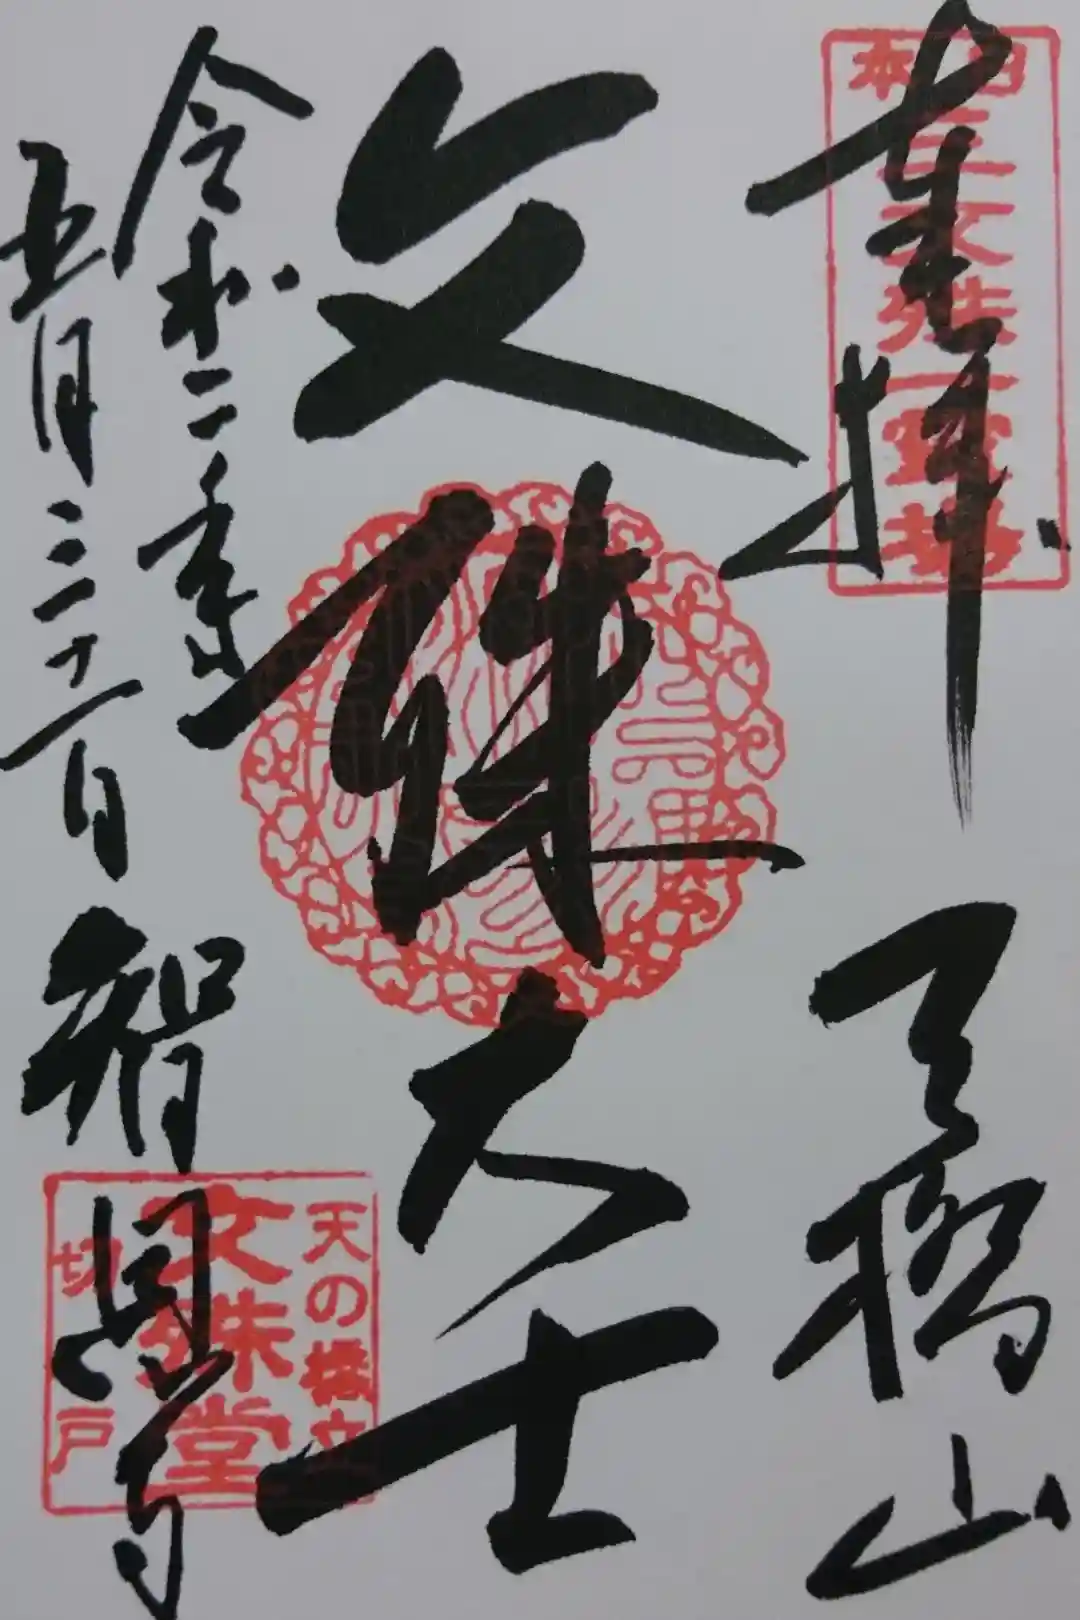 奉拝
天橋山
日本
三文殊一霊場
文殊大士
令和二年
五月三十一日
智恩寺
天の橋立
文殊堂
切戸